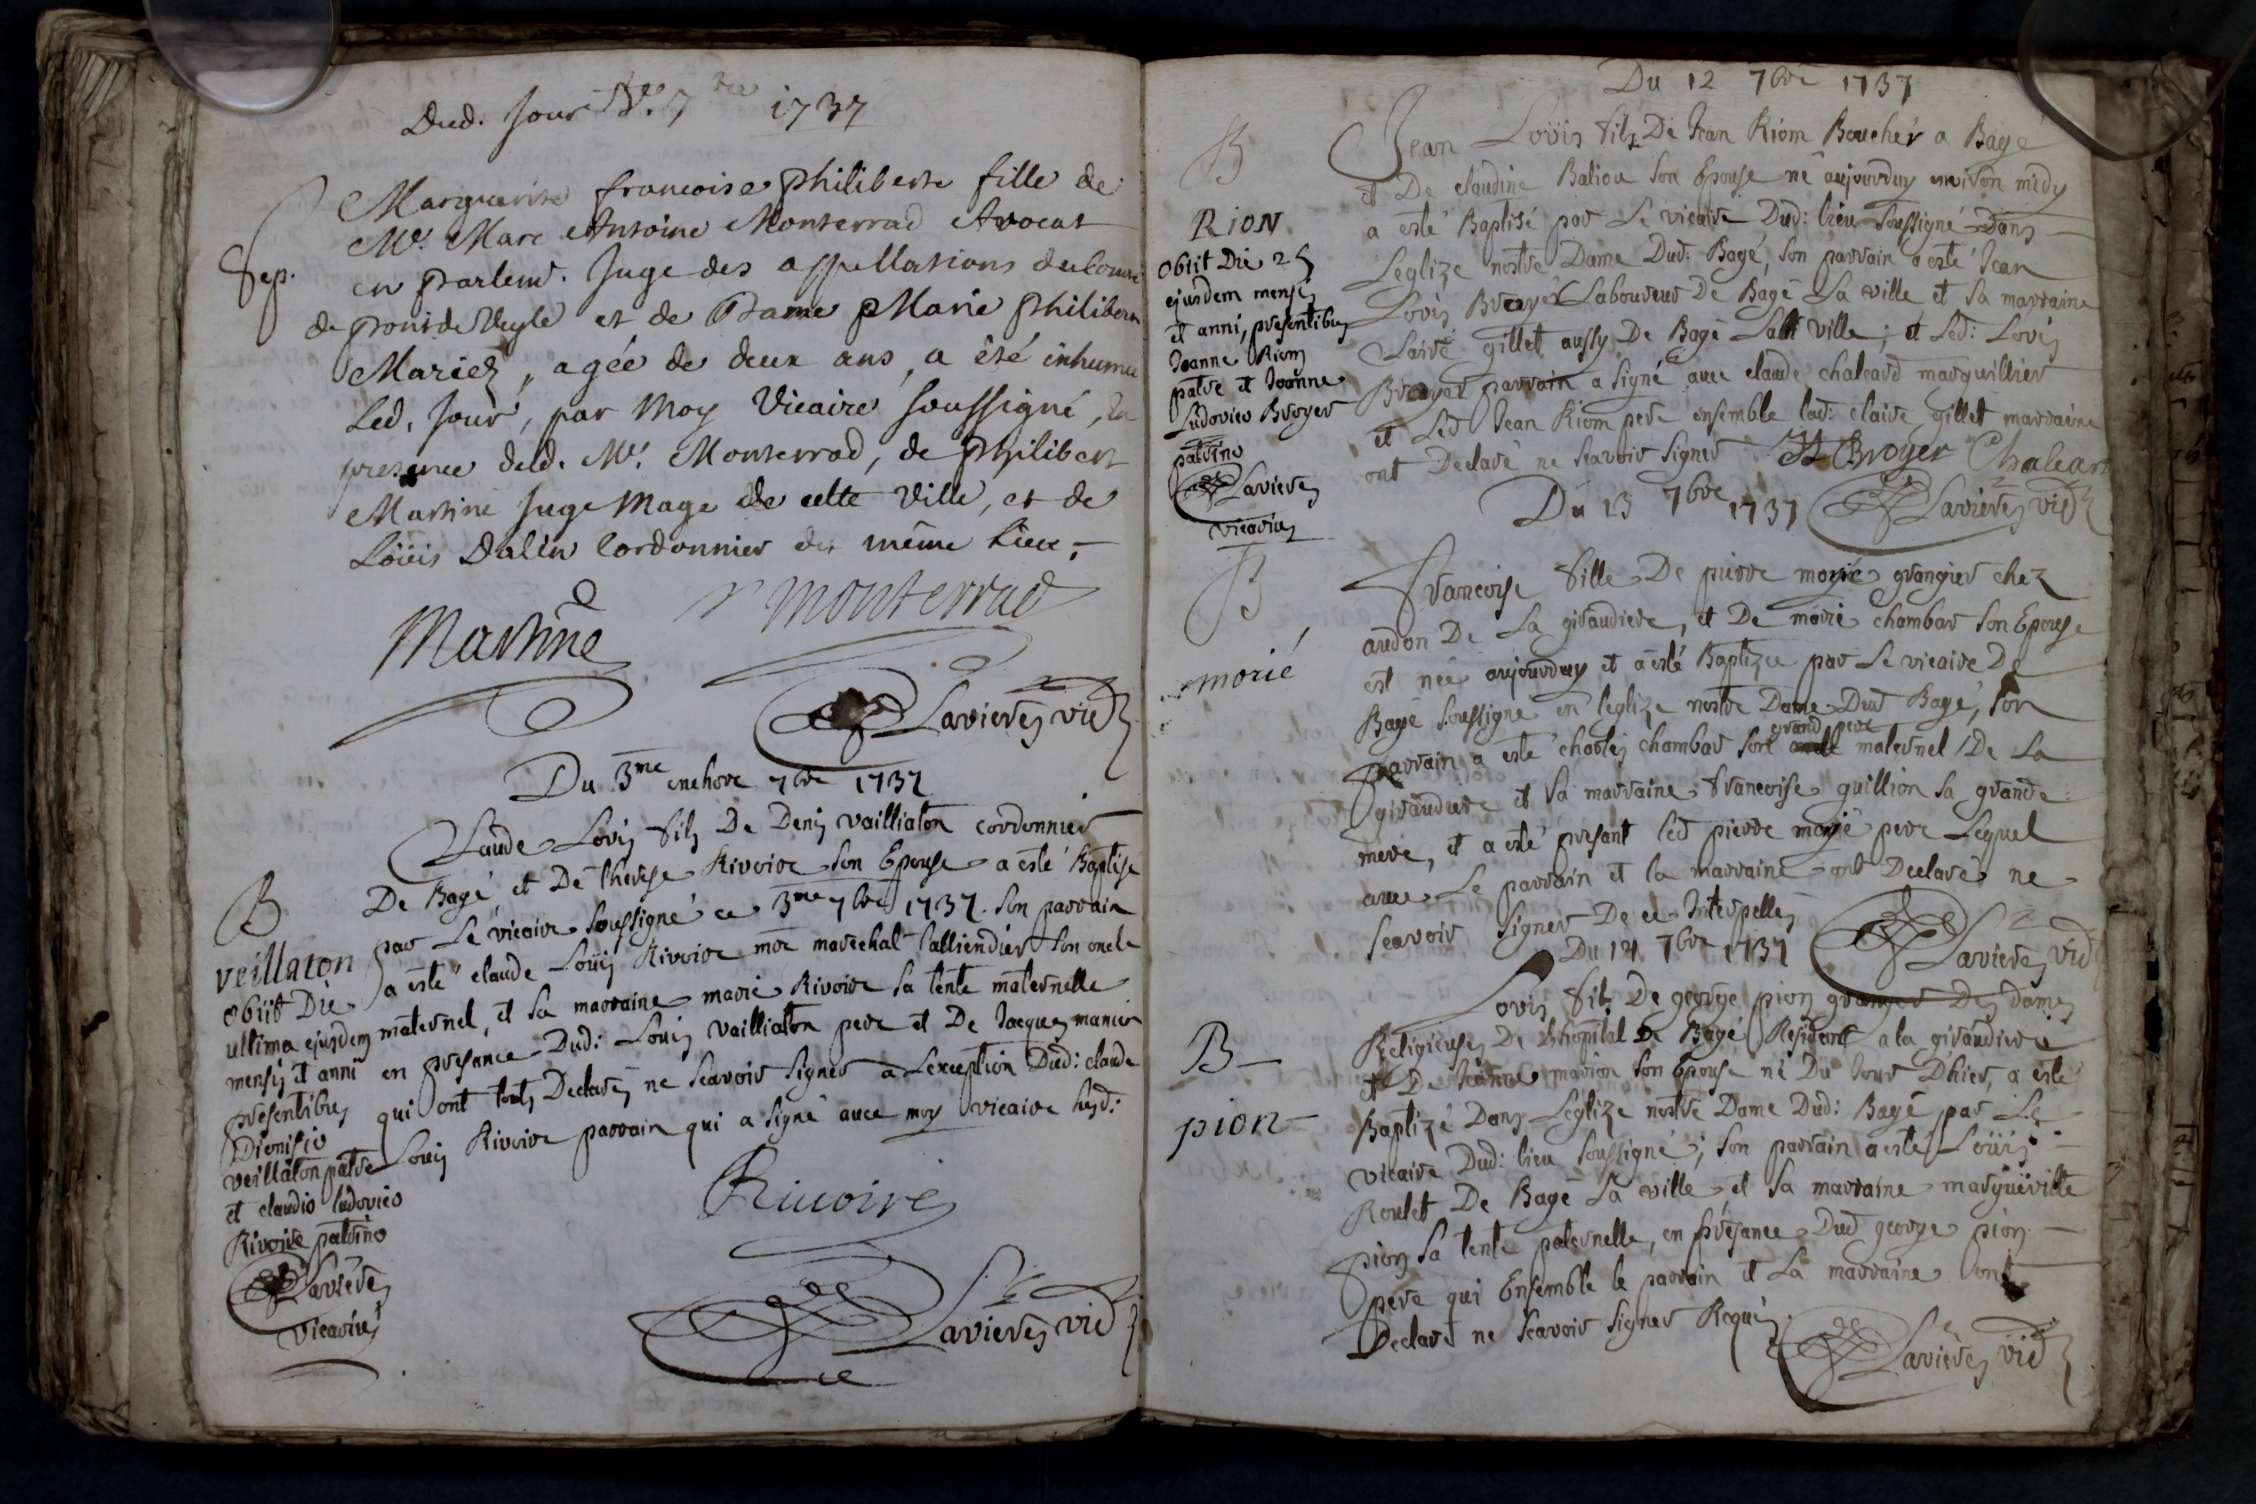 Dud. Jour 7bre 1737
Marguerite francoise philiberte fille de
Mr. Marc Antoine Monterrad Avocat
Sep.
en parlemt. Juge des appellations du comté
de pont de Veyle et de Dame Marie philiberte
Mariez, agée de deux ans, a été inhumée
led. jour, par moy Vicaire soussigné, en
presence dud. Mr. Monterrad, de philibert
Martine juge mage de cette Ville, et de
Loüis Dalin Cordonnier du même lieu,
Martine
Monterrad
Lavieres vic
Du 3me 7bre 1737
Claude Lovis fils De Denis vailliaton cordonnier
De Bagé, et De therese Rivoire son Epouse a esté Baptisé
par Le vicaire soussigné ce 3me 7bre 1737. son parrain
a esté claude Loüis Rivoire mtre marechal talliendier son oncle
maternel, et sa marraine marie Rivoire sa tente maternelle
en presance Dud: Louis vailliaton pere et De Jacques manier
qui ont touts Declarés ne scavoir signer a Lexception Dud: claude
Louis Rivoire parrain qui a signé avec moy vicaire susd:
B
veillaton
obiit Die
ultima ejusdem
mensis et anni
presentibus
Dionisio
veillaton patre
et claudio ludovico
Rivoire patrino
Lavieres
vicarius
Rivoire
Lavieres vic
Du 12 7bre 1737
Jean Loüis fils De Jean Riom Boucher a Bagé
et De claudine Baliou son Epouse né aujourduy environ midy
a esté Baptisé par Le vicaire Dud: lieu soussigné Dans
Leglize nostre Dame Dud: Bagé, son parrain a esté Jean
Lovis Broyer Laboureur De Bagé La ville et sa marraine
Claire gillet aussy De Bagé La ville; et Led: Lovis
Broyer parrain a signé avec claude chaleard marguillier
et Led Jean Riom pere ensemble lad: claire gillet marraine
ont Declaré ne scavoir signer JL Broyer Chalear
B
Rion
obiit Die 25
ejusdem mensis
et anni, presentibus
Joanne Riom
patre et Joanne
Ludovico Broyer
patrino
Lavieres
vicarius
Du 13 7bre 1737 Lavieres vic
Francoise fille De pierre morié grangier chez
audon De La giraudiere, et De marie chambar son Epouse
est née aujourduy et a esté Baptizée par Le vicaire De
Bagé soussigné en leglize nostre Dame Dud Bagé, son
parrain a esté charles chambar son grand pere maternel De La
giraudiere et sa marraine francoise guillion sa grande
mere, et a esté present led pierre morié pere Lequel
avec Le parrain et la marraine ont Declarés ne
scavoir signer De ce Interpellés
B
morié
Du 14 7bre 1737 Lavieres vic
Lovis fils De george pion granger Des dames
Religieuses De Lhopital De Bagé Resident a la giraudiere
et De Jeanne marion son Epouse né Du Jour Dhier, a esté
Baptizé Dans Leglize nostre Dame Dud: Bagé par Le
vicaire Dud: lieu soussigné; son parrain a esté Loüis
Roulet De Bagé La ville et sa marraine margueritte
pion sa tente paternelle, en présance Dud george pion
pere qui Ensemble le parrain et La marraine ont
Declaré ne scavoir signer Requis
B
pion
Lavieres vic